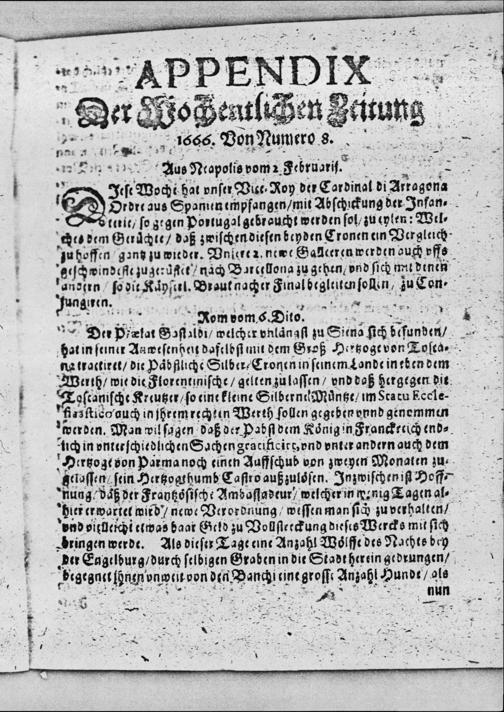 APPENDIX
Der Wochentlichen Zeitung
1666. Von Numero 8.
Aus Neapolis vom 2. Februarij.
DIese Woche hat unser Vice-Roy der Cardinal di Arragona
Ordre aus Spanien empfangen/ mit Abschickung der Infan-
terie/ so gegen Portugal gebraucht werden sol/ zu eylen: Wel-
ches dem Gerüchte/ daß zwischen diesen beyden Cronen ein Vergleich
zu hoffen/ gantz zu wieder. Unsere 2. newe Galleeren werden auch uffs
geschwindeste zugerüstet/ nach Barcellona zu gehen/ und sich mit denen
andern/ so die Käyserl. Braut nacher Final begleiten sollen/ zu Con-
jungiren.
Rom vom 6. Dito.
Der Prælat Gastaldi/ welcher unlängst zu Siena sich befunden/
hat in seiner Anwesenheit daselbst mit dem Groß Hertzoge von Tosca-
na tractiret/ die Päbstliche Silber-Cronen in seinem Lande in eben dem
Werth/ wie die Florentinische/ gelten zu lassen/ und daß hergegen die
Toscanische Kreutzer/ so eine kleine Silberne Müntze/ im Statu Eccle-
siastico auch in jhrem rechten Werth sollen gegeben vnnd genommen
werden. Man wil sagen/ daß der Pabst dem König in Franckreich end-
lich in unterschiedlichen Sachen gratificirt, und unter andern auch dem
Hertzoge von Parma noch einen Auffschub von zweyen Monaten zu-
gelassen/ sein Hertzogthumb Castro außzulösen. Inzwischen ist Hoff-
nung/ daß der Frantzösische Ambassadeur/ welcher in wenig Tagen al-
hier erwartet wird/ newe Verordnung/ wessen man sich zu verhalten/
und vielleicht etwas baar Geld zu Vollstreckung dieses Wercks mit sich
bringen werde. Als dieser Tage eine Anzahl Wölffe des Nachts bey
der Engelburg/ durch selbigen Graben in die Stadt herein gedrungen/
begegnet jhnen unweit von den Banchi eine grosse Anzahl Hunde/ als
nun